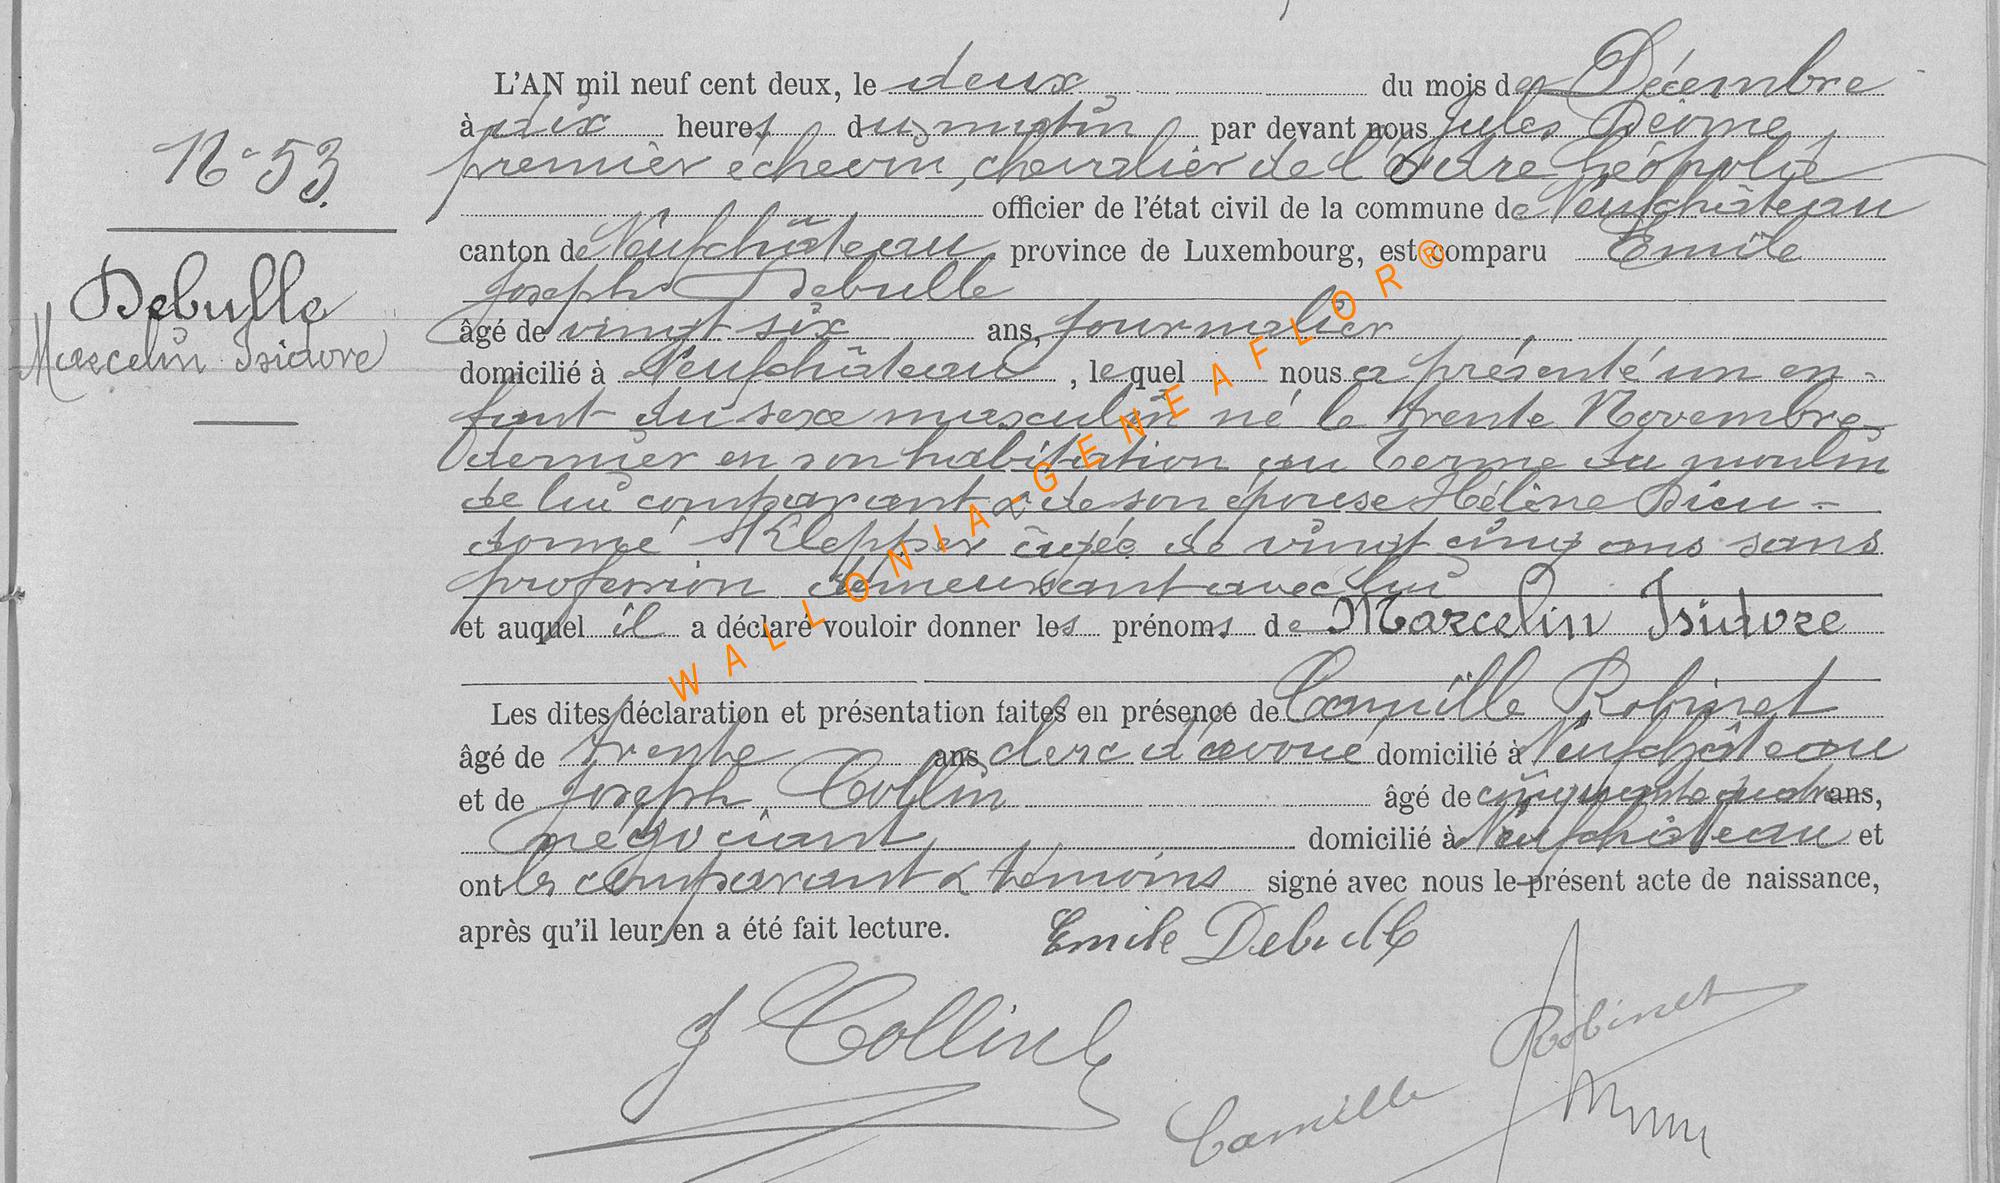 N° 53.
Debulle
Marcelin Isidore
L'AN mil neuf cent deux, le deux du mois de Décembre
à dix heures du matin par devant nous Jules
premier échevin, chevalier de l'Ordre Léopold
officier de l'état civil de la commune de Neufchâteau
canton de Neufchâteau province de Luxembourg, est comparu Emile
Joseph Debulle
âgé de vingt six ans, journalier
domicilié à Neufchâteau, lequel nous a présenté un en-
fant du sexe masculin né le trente Novembre
dernier en son habitation au Terme du moulin
de lui comparant & de son épouse Hélène Dieu-
donné Klepper âgée de vingt cinq ans sans
profession demeurant avec lui
et auquel il a déclaré vouloir donner les prénoms de Marcelin Isidore
Les dites déclaration et présentation faites en présence de Camille Robinet
âgé de trente ans clerc d'avoué domicilié à Neufchâteau
et de Joseph Collin âgé de cinquante quatre ans,
négociant domicilié à Neufchâteau et
ont les comparant & témoins signé avec nous le présent acte de naissance,
après qu'il leur en a été fait lecture. Emile Debulle
J Collin
Camille Robinet
WALLONIA-GENEAFLOR®